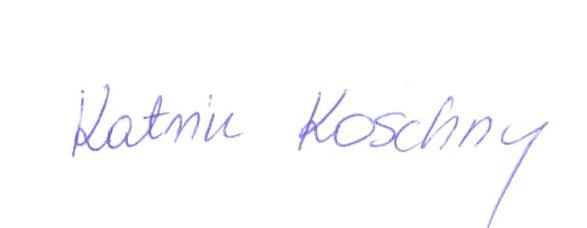 Katrin Koschny